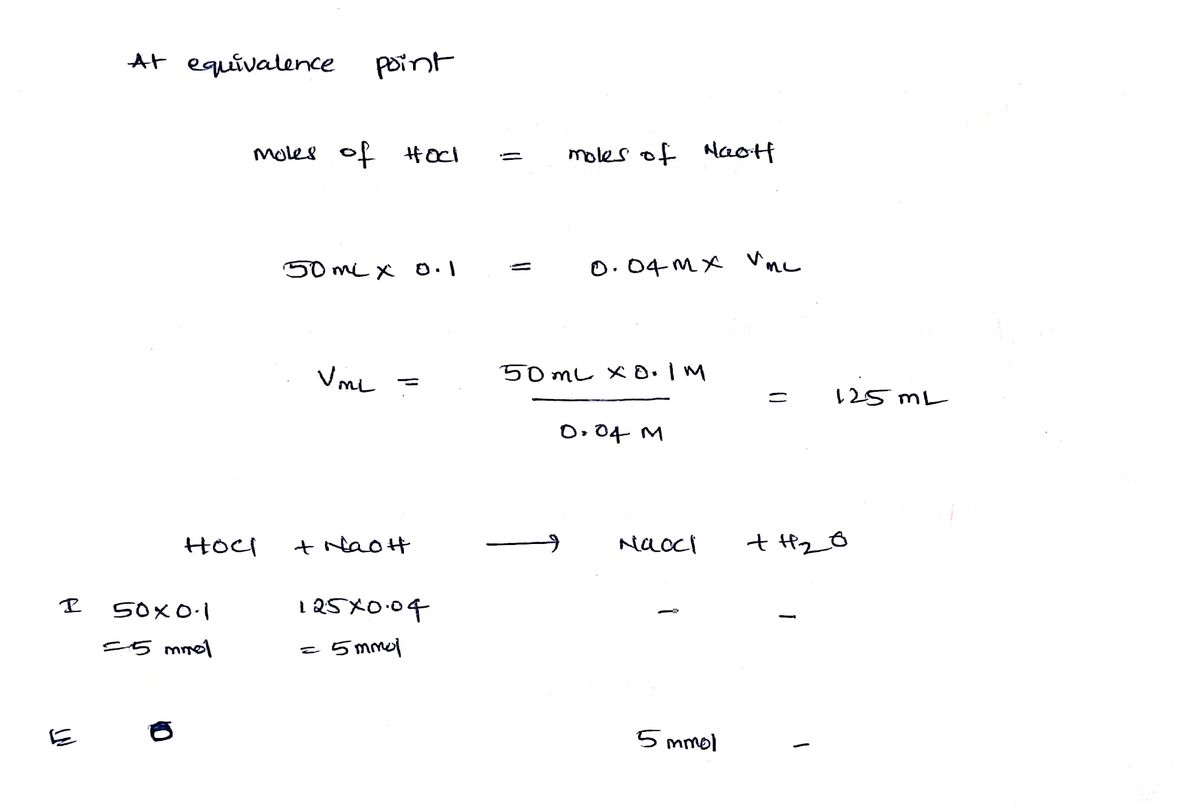 At equivalence point
moles of HOCl = moles of NaOH
50 mL × 0.1 = 0.04 M × V mL
V mL = 50 mL × 0.1 M / 0.04 M = 125 mL
HOCl + NaOH ⟶ NaOCl + H2O
I 50×0.1 125×0.04 - -
=5 mmol = 5 mmol
E 0 5 mmol -